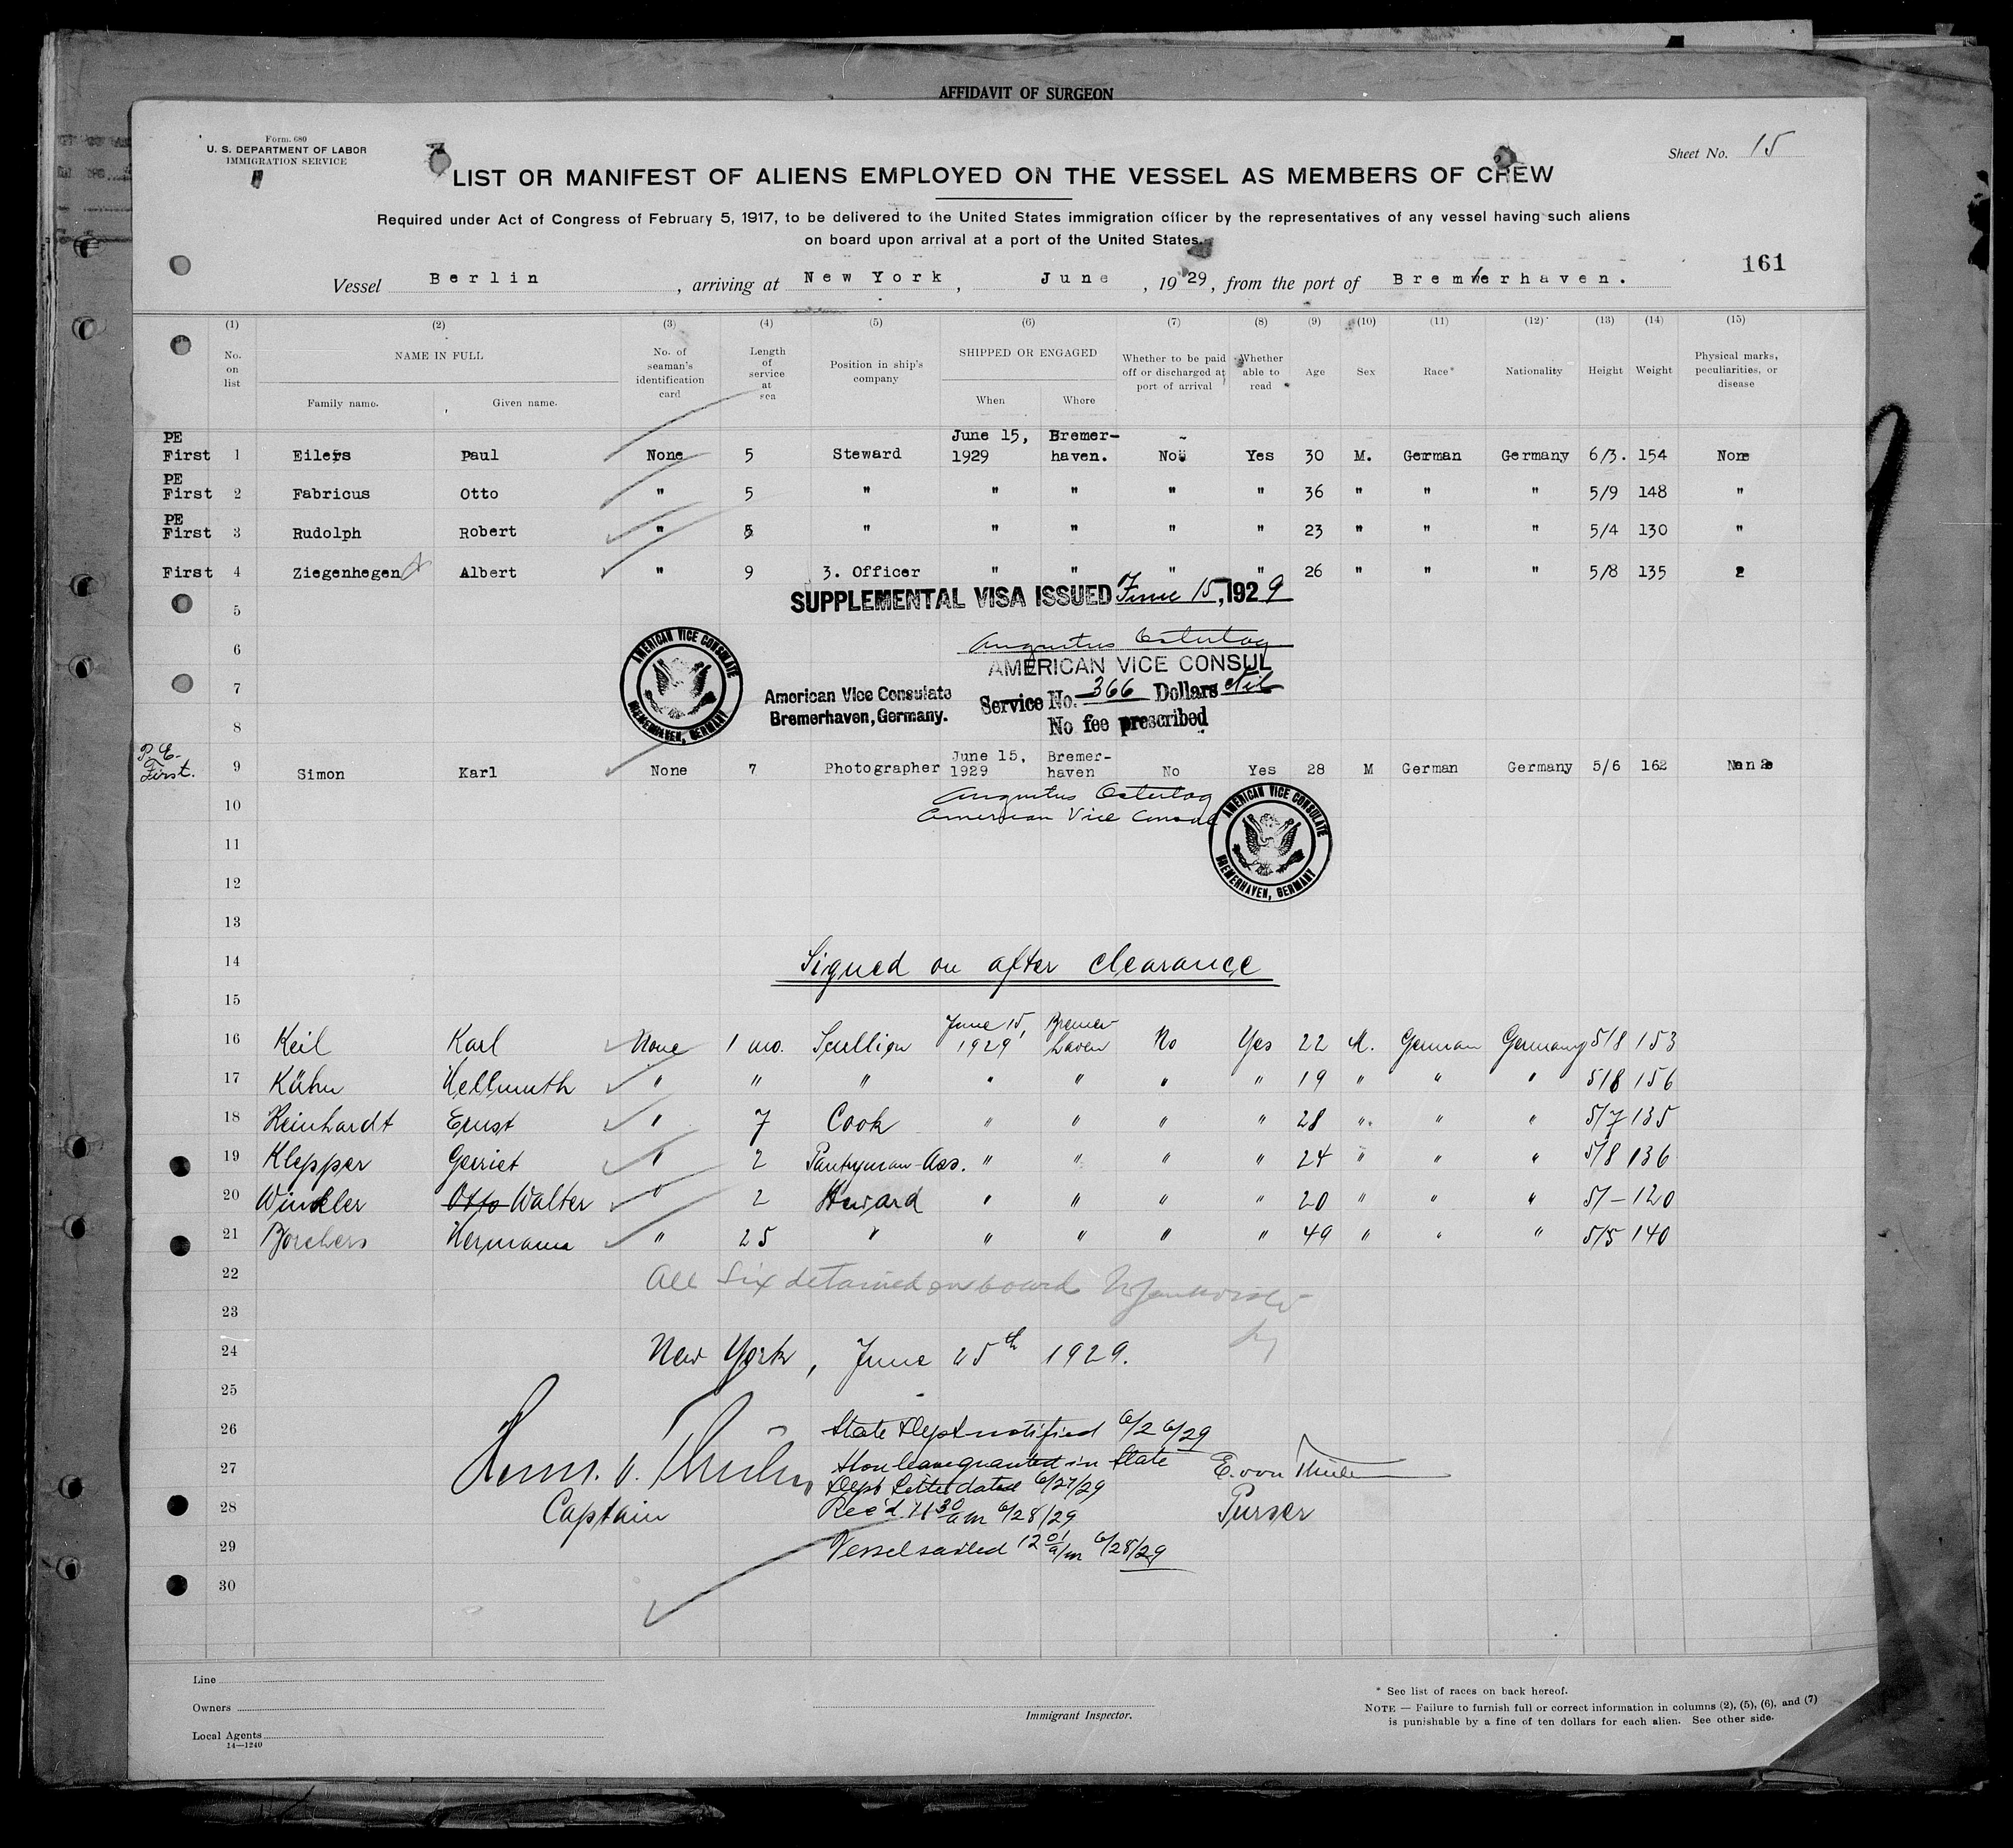 AFFIDAVIT OF SURGEON
Form. 680
U. S. DEPARTMENT OF LABOR
IMMIGRATION SERVICE
Sheet No. 15
LIST OR MANIFEST OF ALIENS EMPLOYED ON THE VESSEL AS MEMBERS OF CREW
Required under Act of Congress of February 5, 1917, to be delivered to the United States immigration officer by the representatives of any vessel having such aliens
on board upon arrival at a port of the United States.
161
Vessel Berlin, arriving at New York, June, 1929, from the port of Bremerhaven.
(1) (2) (3) (4) (5) (6) (7) (8) (9) (10) (11) (12) (13) (14) (15)
No. on list
NAME IN FULL
Family name. Given name.
No. of seaman's identification card
Length of service at sea
Position in ship's company
SHIPPED OR ENGAGED
When Where
Whether to be paid off or discharged at port of arrival
Whether able to read
Age Sex Race* Nationality Height Weight
Physical marks, peculiarities, or disease
PE First 1 Eilers Paul None 5 Steward June 15, 1929 Bremer-haven. No Yes 30 M. German Germany 6/3. 154 None
PE First 2 Fabricus Otto " 5 " " " " " 36 " " " 5/9 148 "
PE First 3 Rudolph Robert " 5 " " " " " 23 " " " 5/4 130 "
First 4 Ziegenhegen Albert " 9 3. Officer " " " " 26 " " " 5/8 135
5
SUPPLEMENTAL VISA ISSUED June 15, 1929
6
Augustus Ostertag
AMERICAN VICE CONSUL
7
AMERICAN VICE CONSULATE BREMERHAVEN, GERMANY.
American Vice Consulate
Bremerhaven, Germany.
Service No. 366 Dollars Nil
No fee prescribed
8
P.E. First. 9 Simon Karl None 7 Photographer June 15, 1929 Bremer-haven No Yes 28 M German Germany 5/6 162 None
10
Augustus Ostertag
American Vice Consul
AMERICAN VICE CONSULATE BREMERHAVEN, GERMANY
11
12
13
14 Signed on after clearance
15
16 Keil Karl None 1 mo. Scullion June 15, 1929 Bremer haven No Yes 22 M. German Germany 5/8 153
17 Kühn Hellmuth " " " " " " " 19 " " " 5/8 156
18 Reinhardt Ernst " 7 Cook " " " " 28 " " " 5/7 135
19 Klepper Gerriet " 2 Pantryman-Ass. " " " " 24 " " " 5/8 136
20 Winkler Otto Walter " 2 Steward " " " " 20 " " " 5/- 120
21 Borchers Hermann " 25 " " " " " 49 " " " 5/5 140
22 All Six detained on board
23
24 New York, June 25th 1929.
25
26 State Dept notified 6/26/29
27 leave granted in State
Dept Letter dated 6/27/29
E. von
28 Captain
Rec'd 11 30 am 6/28/29
Purser
29 Vessel sailed 12 01 a/m 6/28/29
30
Line
Owners
Local Agents
14—1240
Immigrant Inspector.
* See list of races on back hereof.
NOTE — Failure to furnish full or correct information in columns (2), (5), (6), and (7)
is punishable by a fine of ten dollars for each alien. See other side.